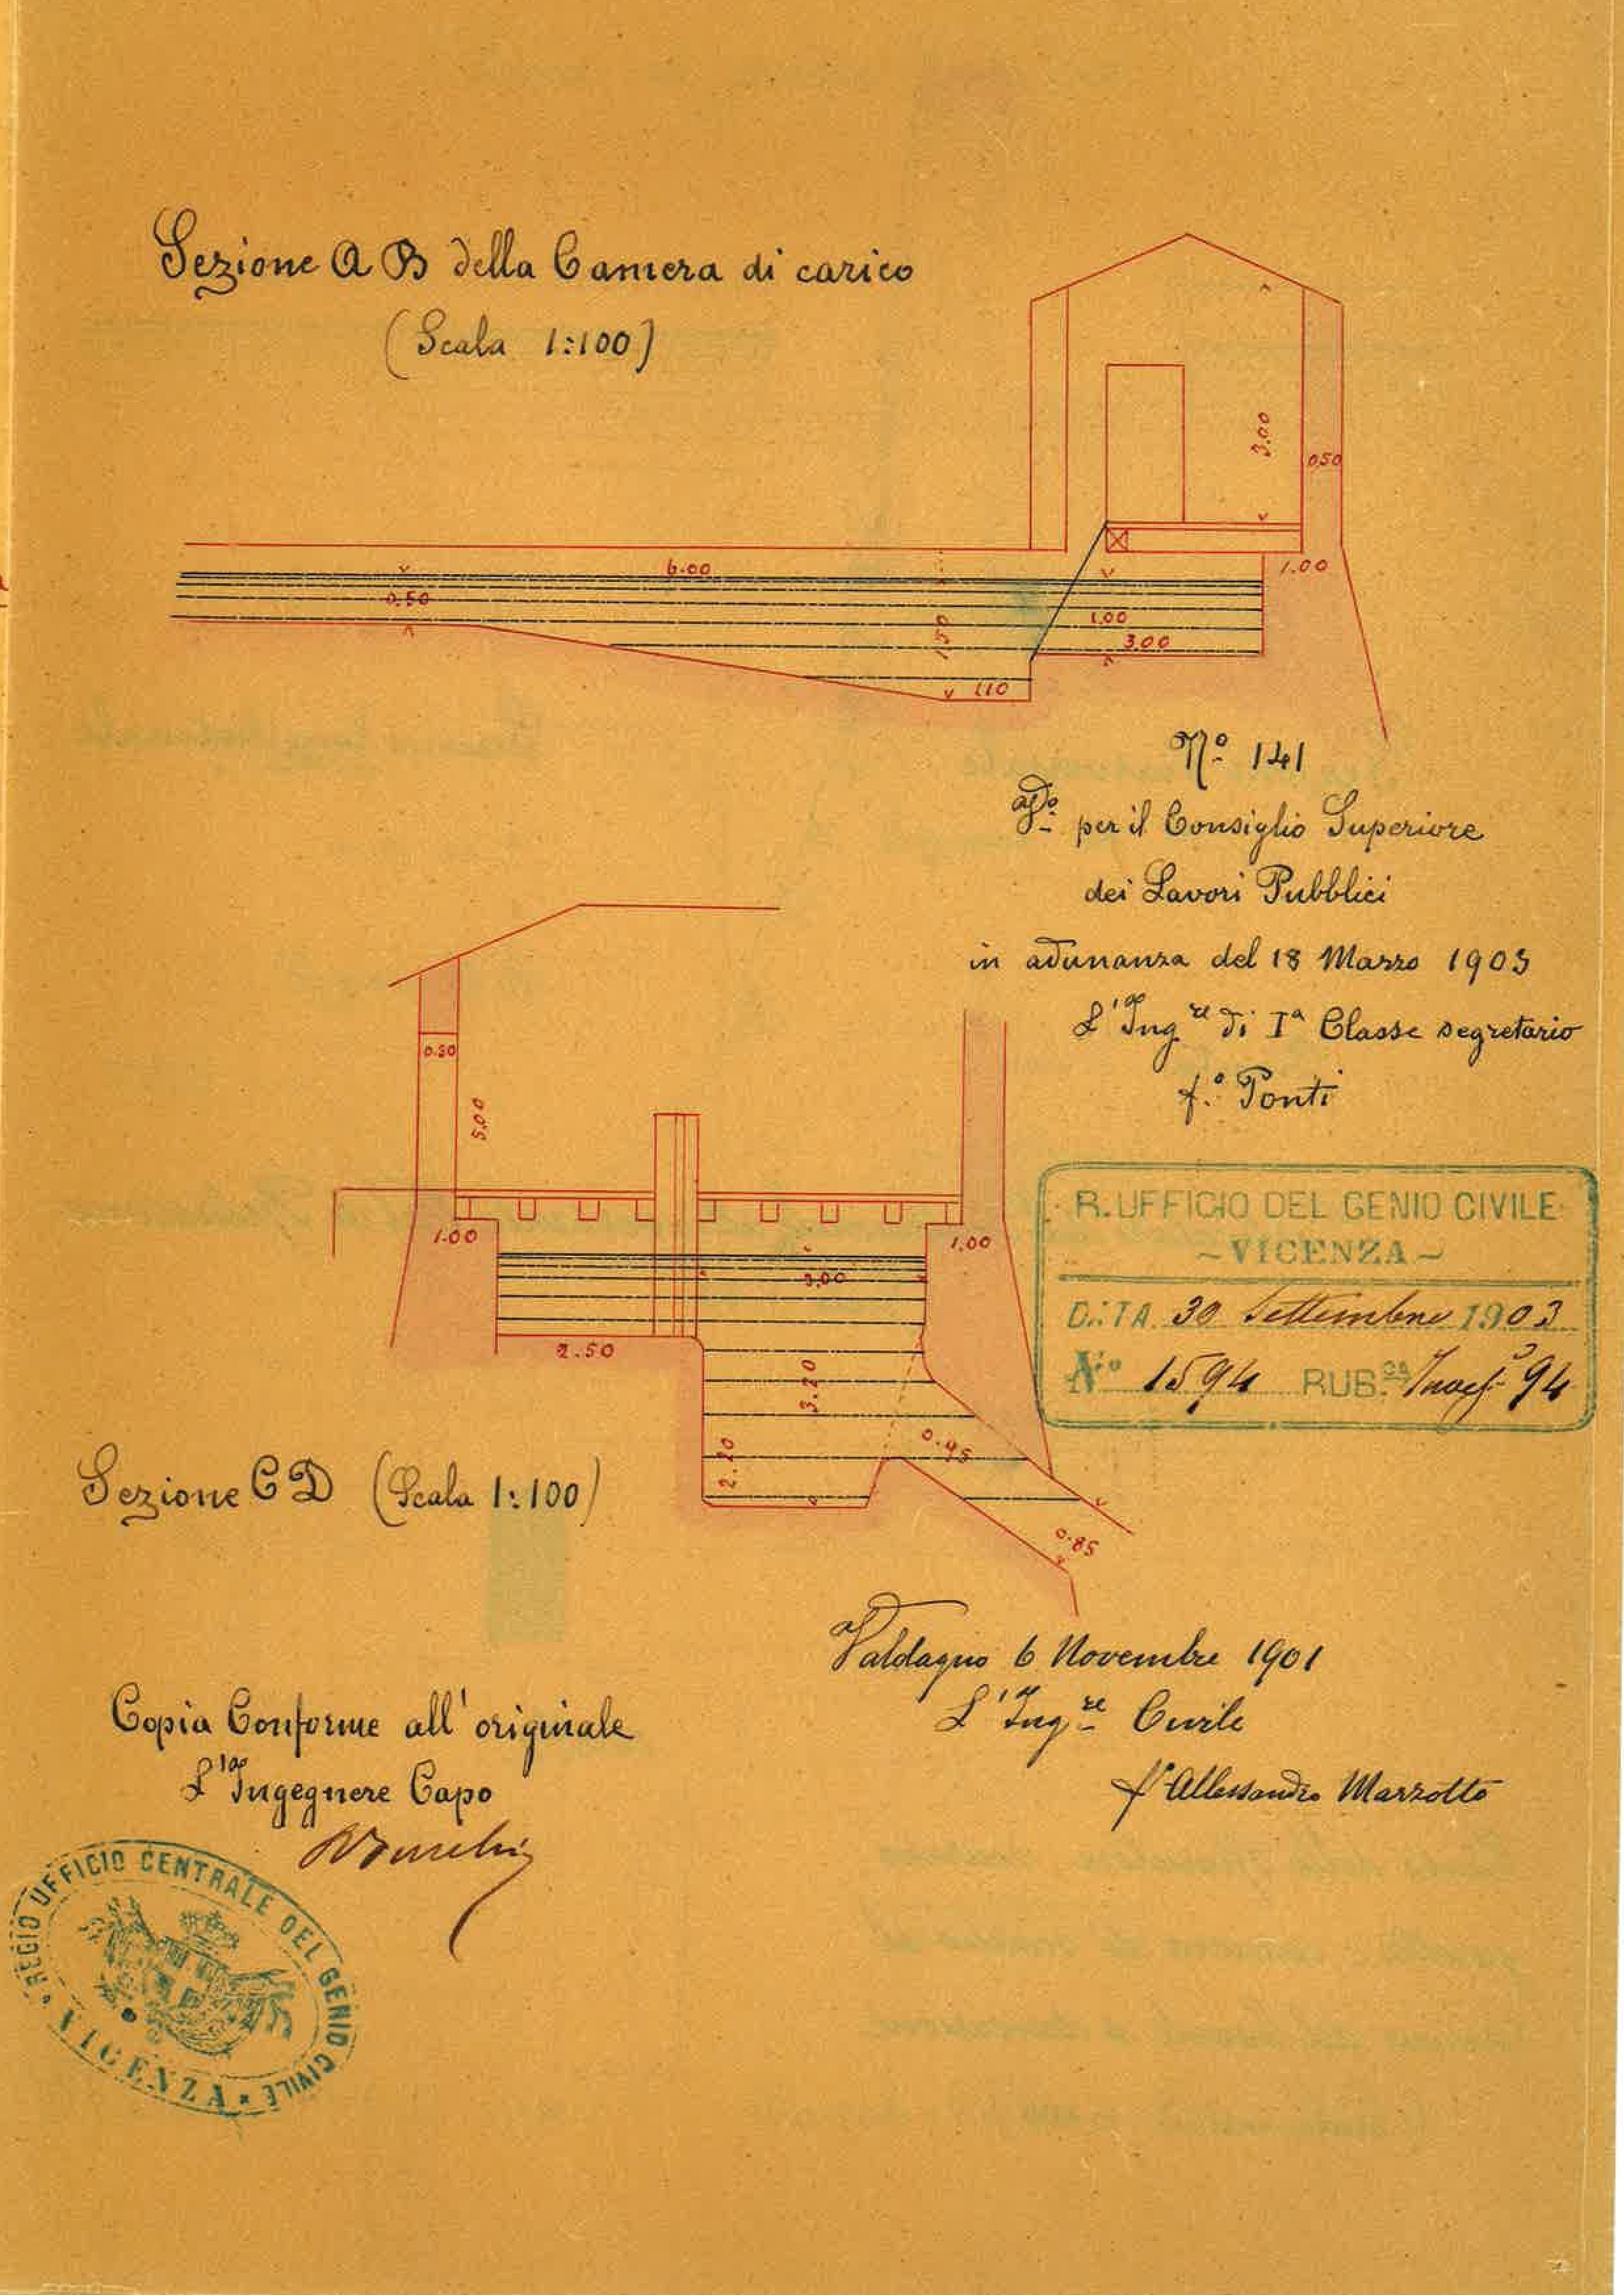 Sezione A B della Camera di carico
(Scala 1:100)
3.00
0.50
6.00
0.50
1.00
1.00
1.50
3.00
1.10
Nº 141
Vº per il Consiglio Superiore
dei Lavori Pubblici
in adunanza del 18 Marzo 1903
L'Ingre di Iª Classe segretario
f.º Ponti
0.50
5.00
R. UFFICIO DEL GENIO CIVILE
~VICENZA~
DATA 30 Settembre 1903
Nº 1594 RUB.ca 94
1.00
1.00
3.00
2.50
3.20
2.20
0.45
0.85
Sezione C D (Scala 1:100)
Valdagno 6 Novembre 1901
L'Ingre Civile
fº Allessandro Marzotto
Copia Conforme all'originale
L'Ingegnere Capo
REGIO UFFICIO CENTRALE DEL GENIO CIVILE
VICENZA